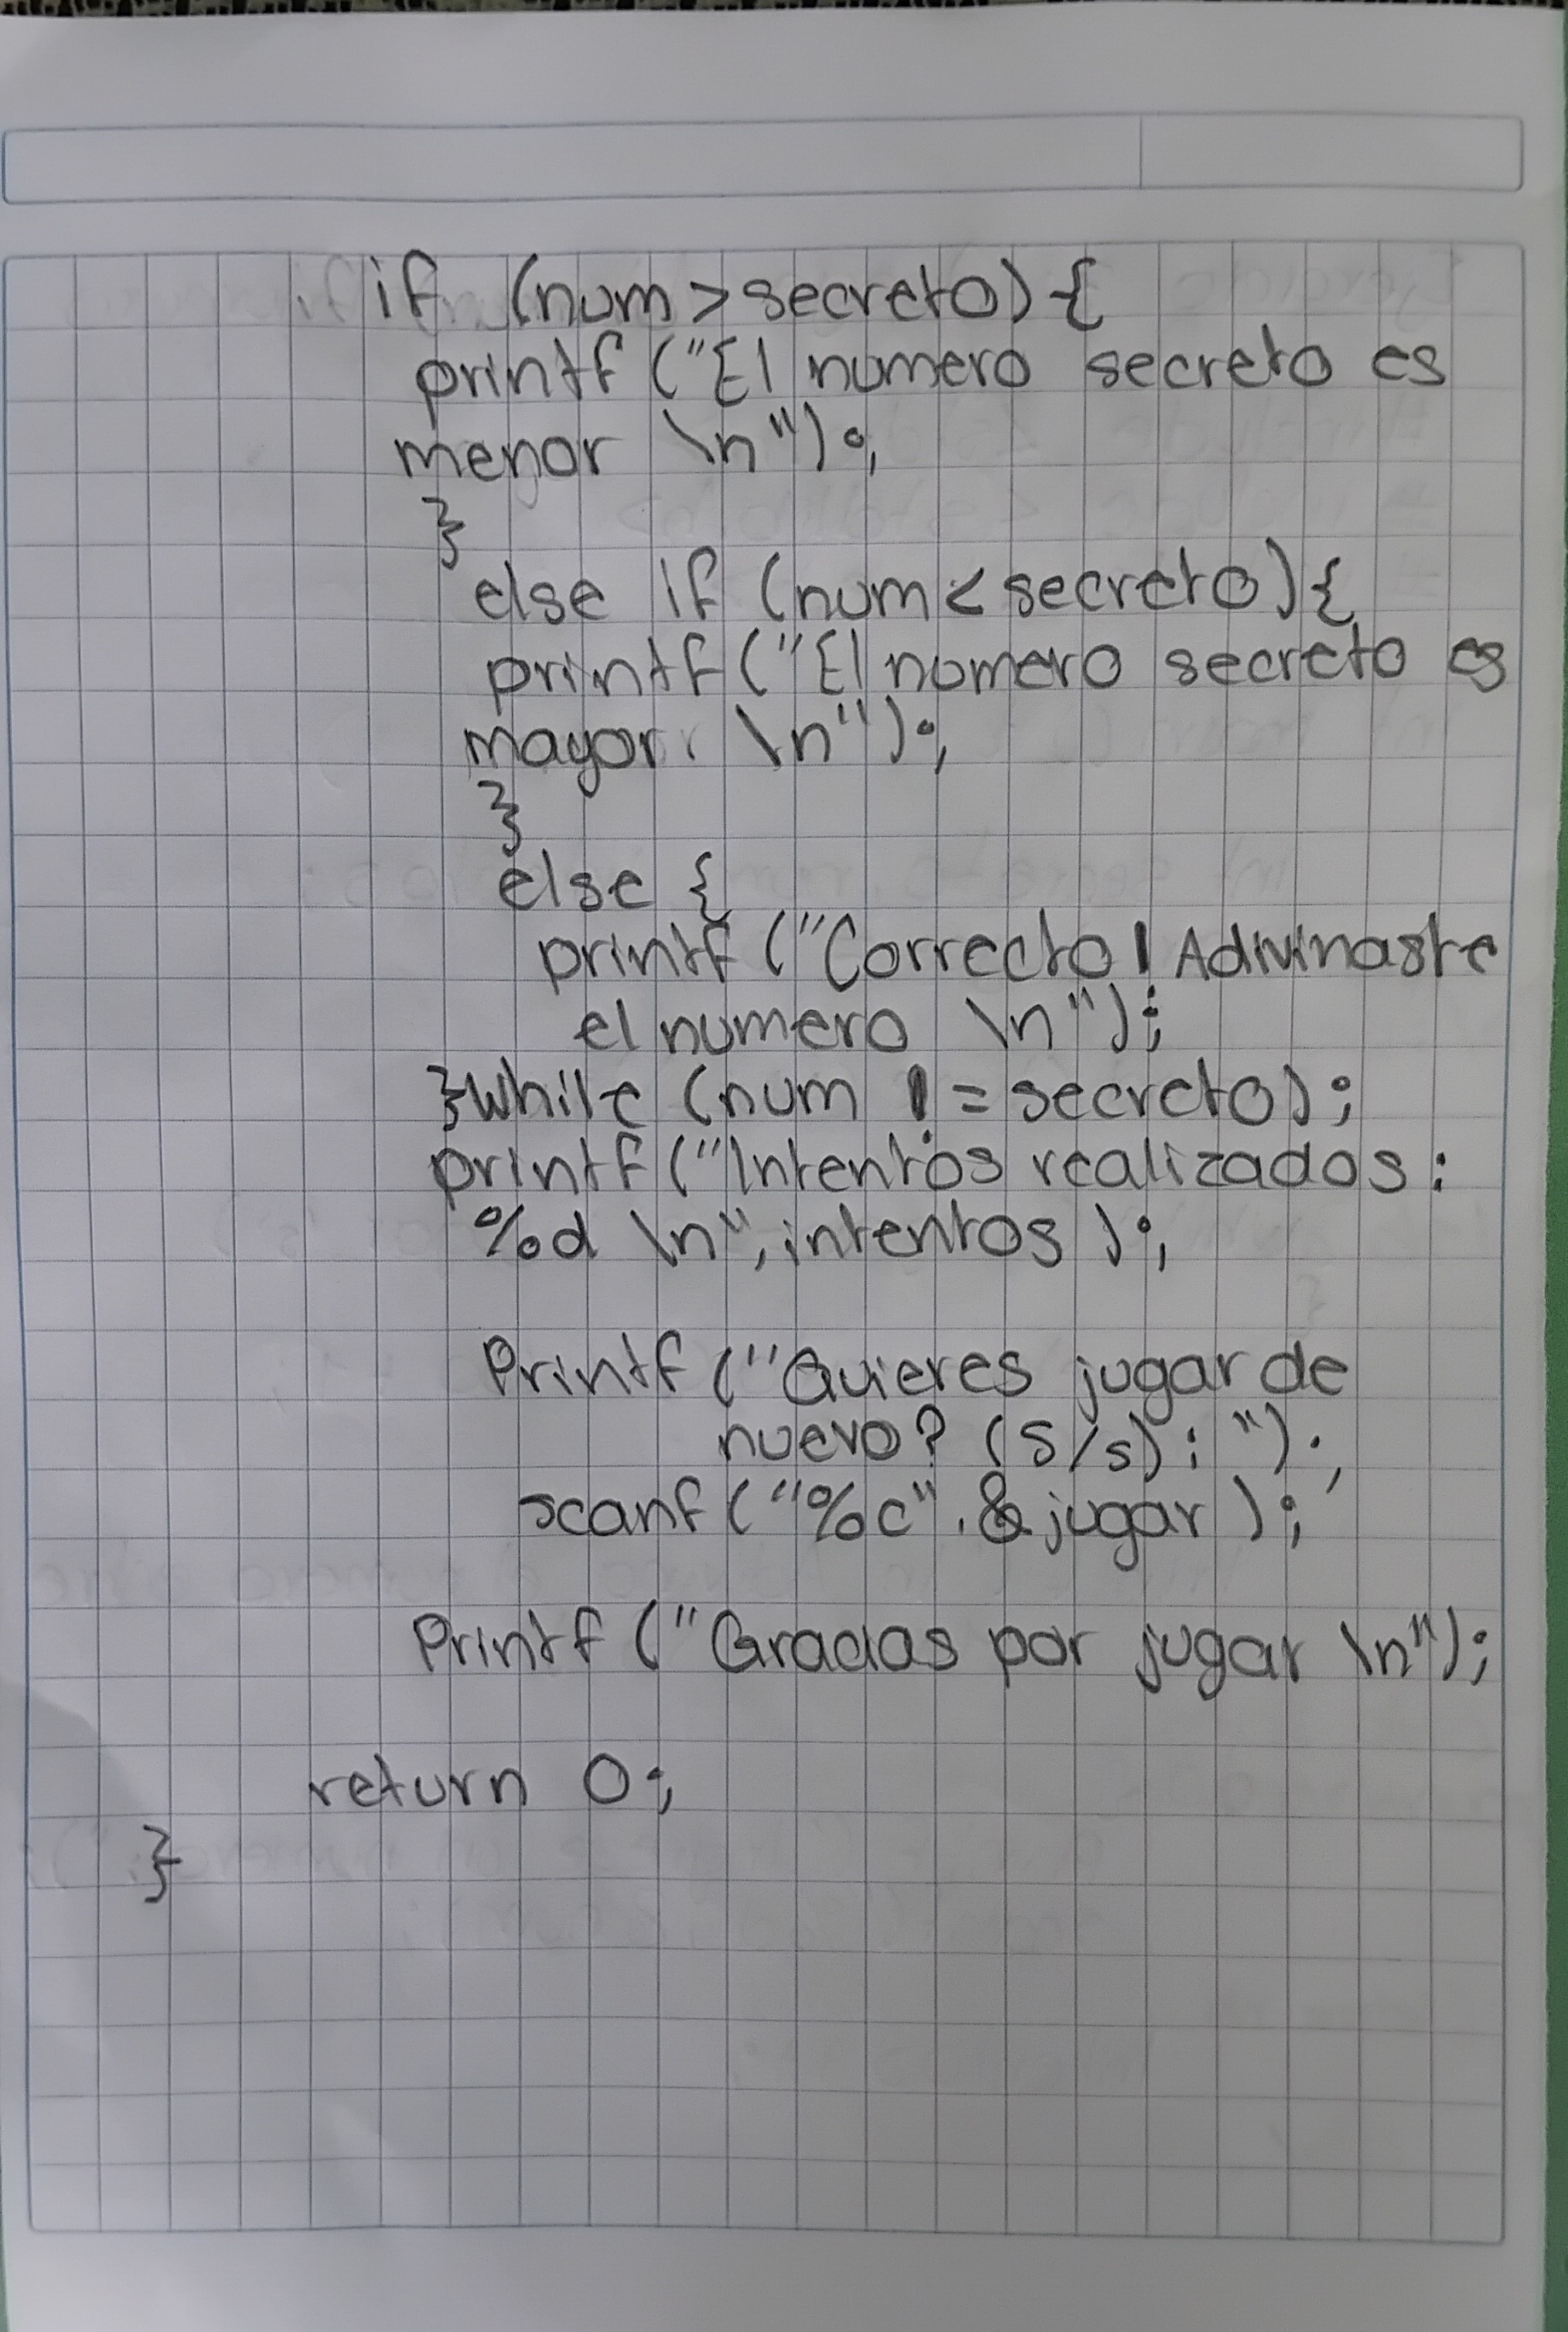 if (num > secreto) {
printf ("El numero secreto es
menor \n");
}
else if (num < secreto) {
printf ("El numero secreto es
mayor. \n");
}
else {
printf ("Correcto! Adivinaste
el numero \n");
}while (num != secreto);
printf ("Intentos realizados:
%d \n", intentos);
Printf ("Quieres jugar de
nuevo? (S/s): ");
scanf ("%c", &jugar);
Printf ("Gracias por jugar \n");
return 0;
}